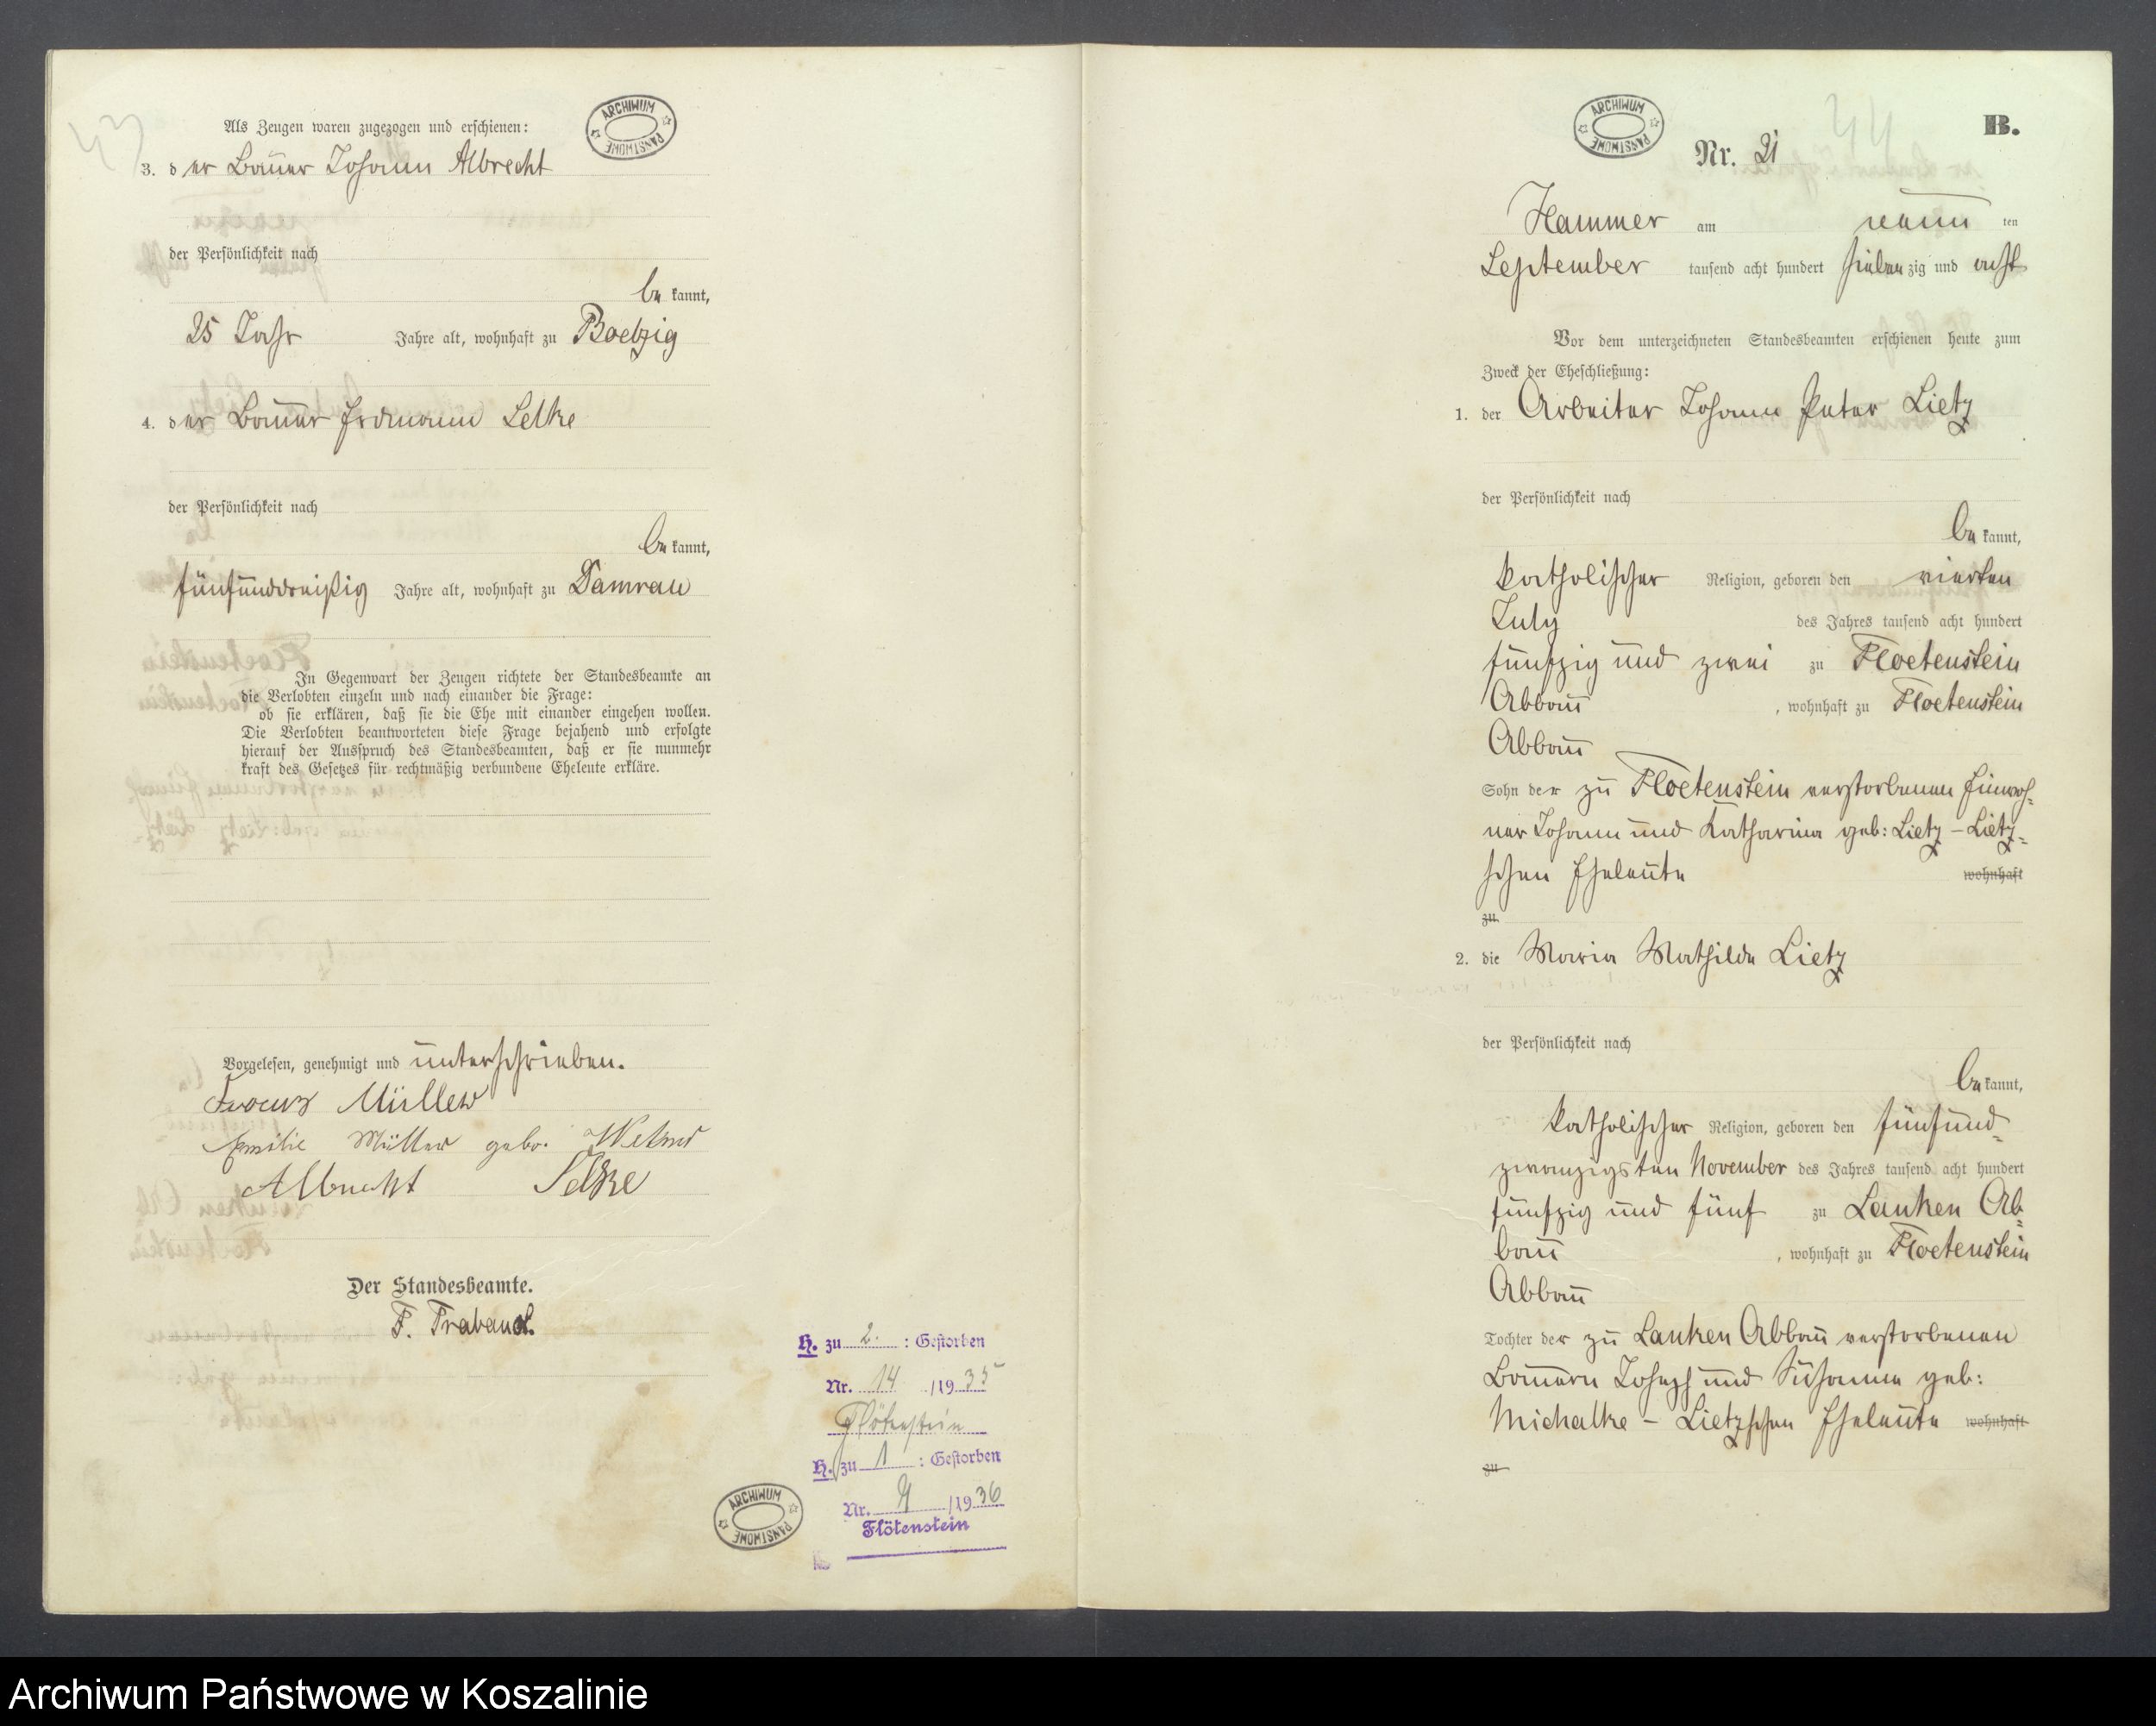 43
Als Zeugen waren zugezogen und erschienen:
ARCHIWUM PAŃSTWOWE
3. der Bauer Johann Albrecht
der Persönlichkeit nach
be kannt,
25 Jahr Jahre alt, wohnhaft zu Baelzig
4. der Bauer Erdmann Selke
der Persönlichkeit nach
be kannt,
fünfunddreißig Jahre alt, wohnhaft zu Damrau
In Gegenwart der Zeugen richtete der Standesbeamte an
die Verlobten einzeln und nach einander die Frage:
ob sie erklären, daß sie die Ehe mit einander eingehen wollen.
Die Verlobten beantworteten diese Frage bejahend und erfolgte
hierauf der Ausspruch des Standesbeamten, daß er sie nunmehr
kraft des Gesetzes für rechtmäßig verbundene Eheleute erkläre.
Vorgelesen, genehmigt und unterschrieben.
Franz Müller
Emilie Müller gebo.
Albrecht Selke
Der Standesbeamte.
F. Trabandt.
H. zu 2. : Gestorben
Nr. 14 /1935
Flötenstein
H. zu 1 : Gestorben
Nr. 4 /1936
Flötenstein
ARCHIWUM PAŃSTWOWE
ARCHIWUM PAŃSTWOWE
44
B.
Nr. 21
Hammer am neun ten
September tausend acht hundert sieben zig und acht
Vor dem unterzeichneten Standesbeamten erschienen heute zum
Zweck der Eheschließung:
1. der Arbeiter Johann Peter Lietz
der Persönlichkeit nach
be kannt,
katholischer Religion, geboren den vierten
July des Jahres tausend acht hundert
fünfzig und zwei zu Floetenstein
Abbau , wohnhaft zu Floetenstein
Abbau
Sohn der zu Floetenstein verstorbenen Einwoh-
ner Johann und Katharina geb: Lietz – Lietz-
schen Eheleute wohnhaft
zu
2. die Maria Mathilde Lietz
der Persönlichkeit nach
be kannt,
katholischer Religion, geboren den fünfund-
zwanzigsten November des Jahres tausend acht hundert
fünfzig und fünf zu Lanken Ab-
bau , wohnhaft zu Floetenstein
Abbau
Tochter der zu Lanken Abbau verstorbenen
Bauern Joseph und Susanna geb:
Michalke – Lietzschen Eheleute wohnhaft
zu
Archiwum Państwowe w Koszalinie